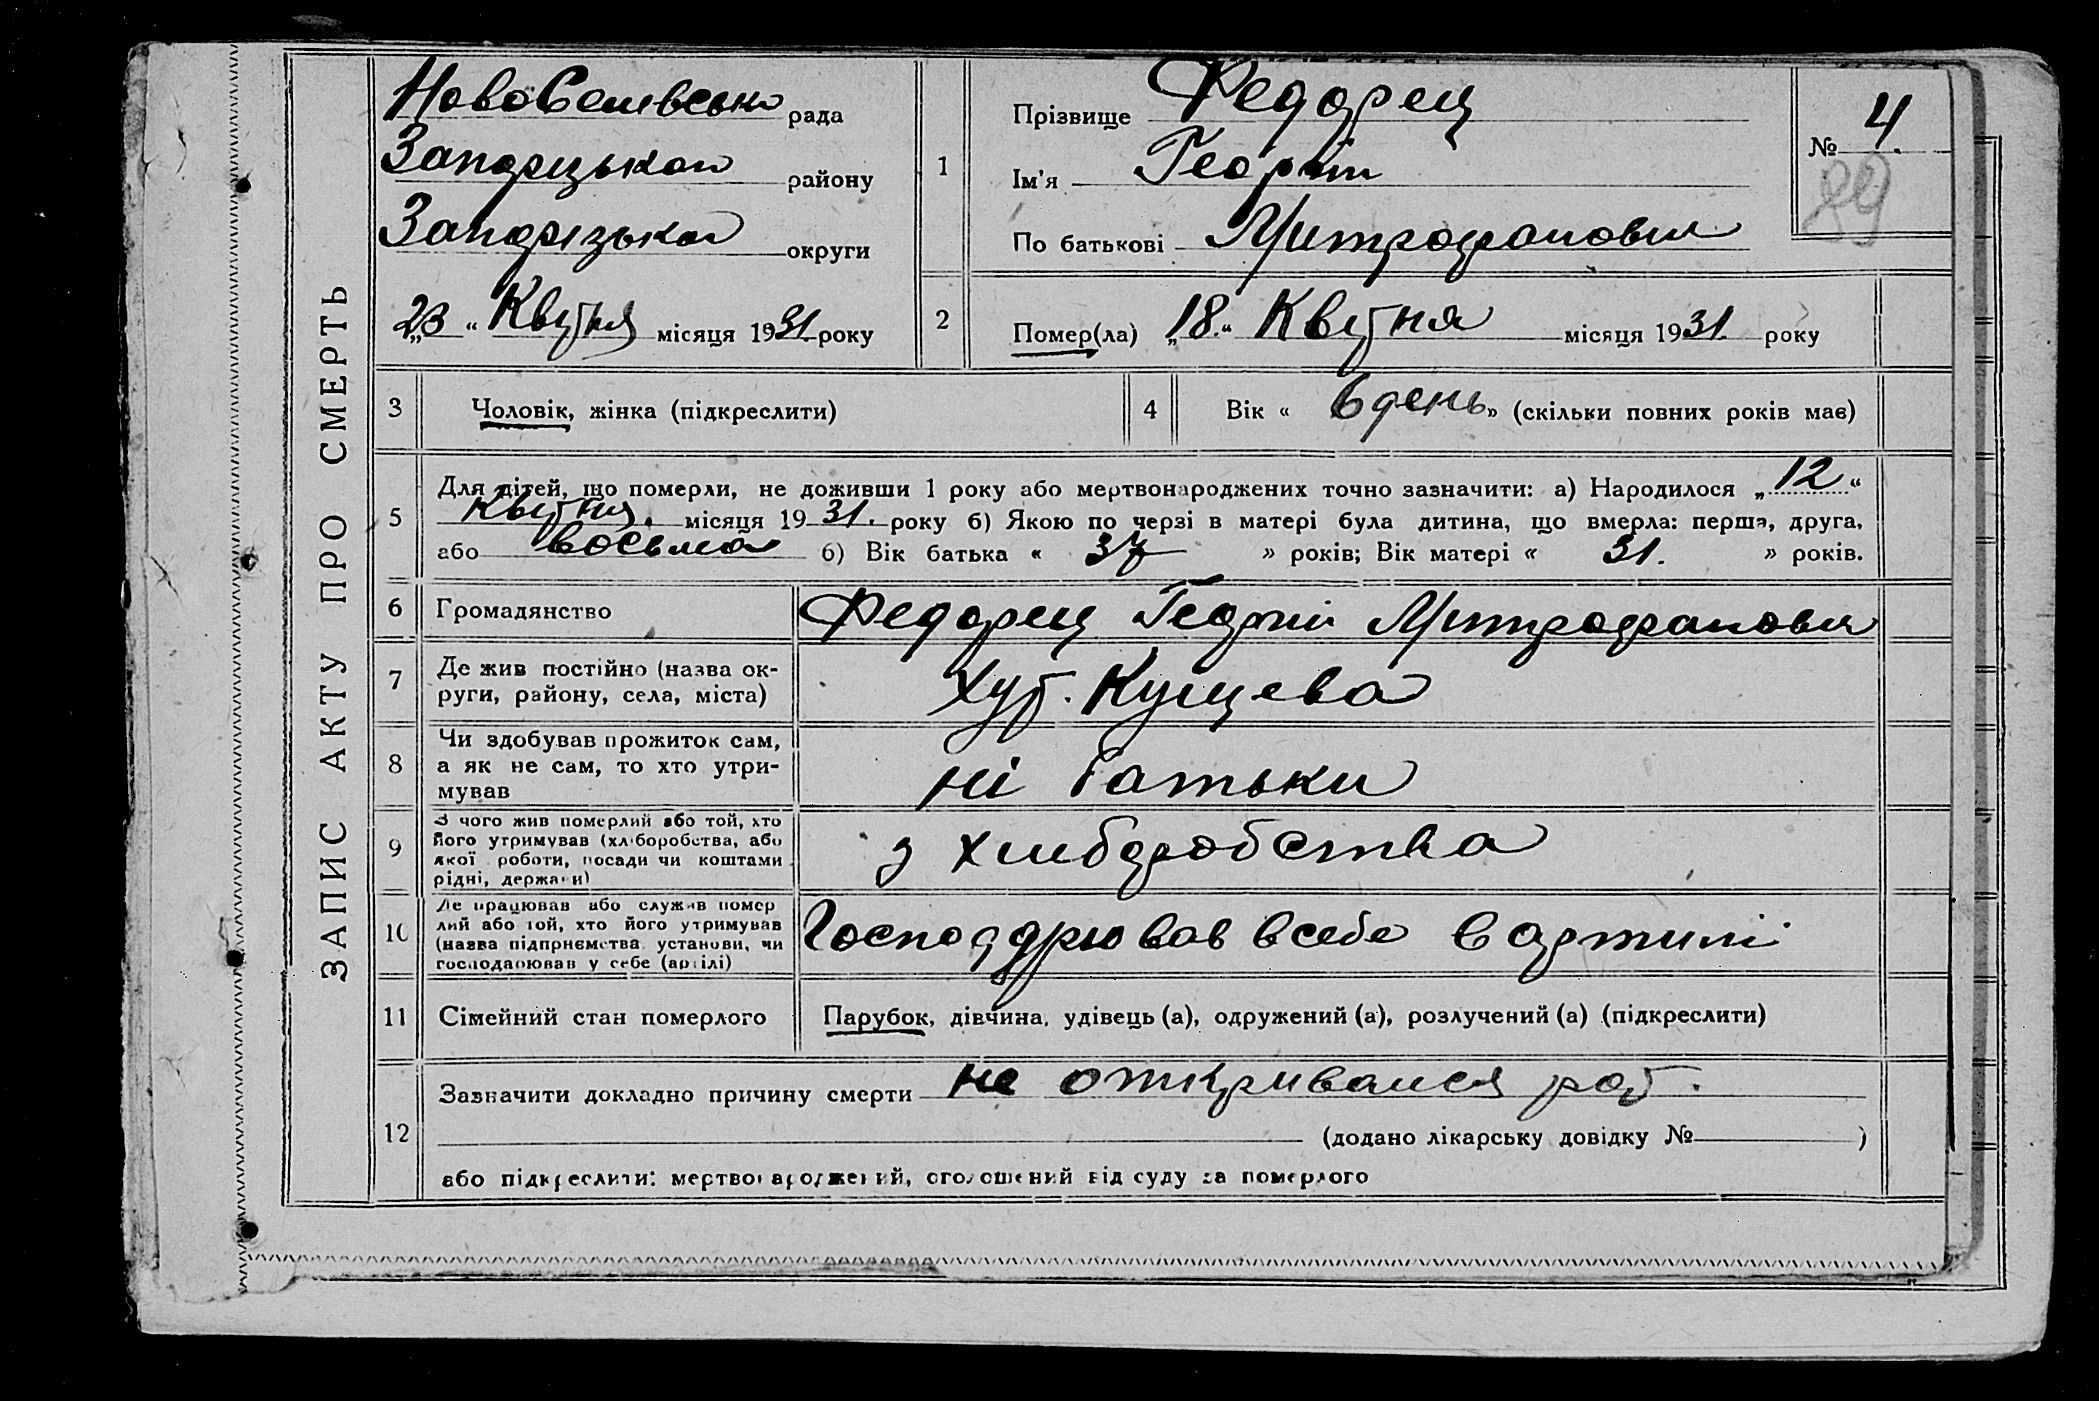 ЗАПИС АКТУ ПРО СМЕРТЬ
НовоСелівська рада
Запорізького району
Запорізької округи
„23“ Квітня місяця 1931 року
1
Прізвище Федорец
Ім'я Георгій
По батькові Митрофанович
№ 4.
99
2
Помер(ла) „18.“ Квітня місяця 1931. року
3 Чоловік, жінка (підкреслити)
4 Вік « 6 день » (скільки повних років має)
5 Для дітей, що померли, не доживши 1 року або мертвонароджених точно зазначити: а) Народилося „12“
Квітня. місяця 1931. року б) Якою по черзі в матері була дитина, що вмерла: перша, друга,
або восьма б) Вік батька « 37 » років; Вік матері « 31. » років.
6 Громадянство Федорец Георгій Митрофанович
7 Де жив постійно (назва ок-
руги, району, села, міста) Хут. Кущева
8 Чи здобував прожиток сам,
а як не сам, то хто утри-
мував ні батьки
9 З чого жив померлий або той, хто
його утримував (хліборобства, або
якої роботи, посади чи коштами
рідні, держави) з хліборобства
10 Де працював або служив помер
лий або той, хто його утримував
(назва підприємства установи, чи
господарював у себе (артілі) Господарював в себе в артилі
11 Сімейний стан померлого Парубок, дівчина, удівець (а), одружений (а), розлучений (а) (підкреслити)
12 Зазначити докладно причину смерти не откривался рот.
(додано лікарську довідку № )
або підкреслити: мертвонароджений, оголошений від суду за померлого